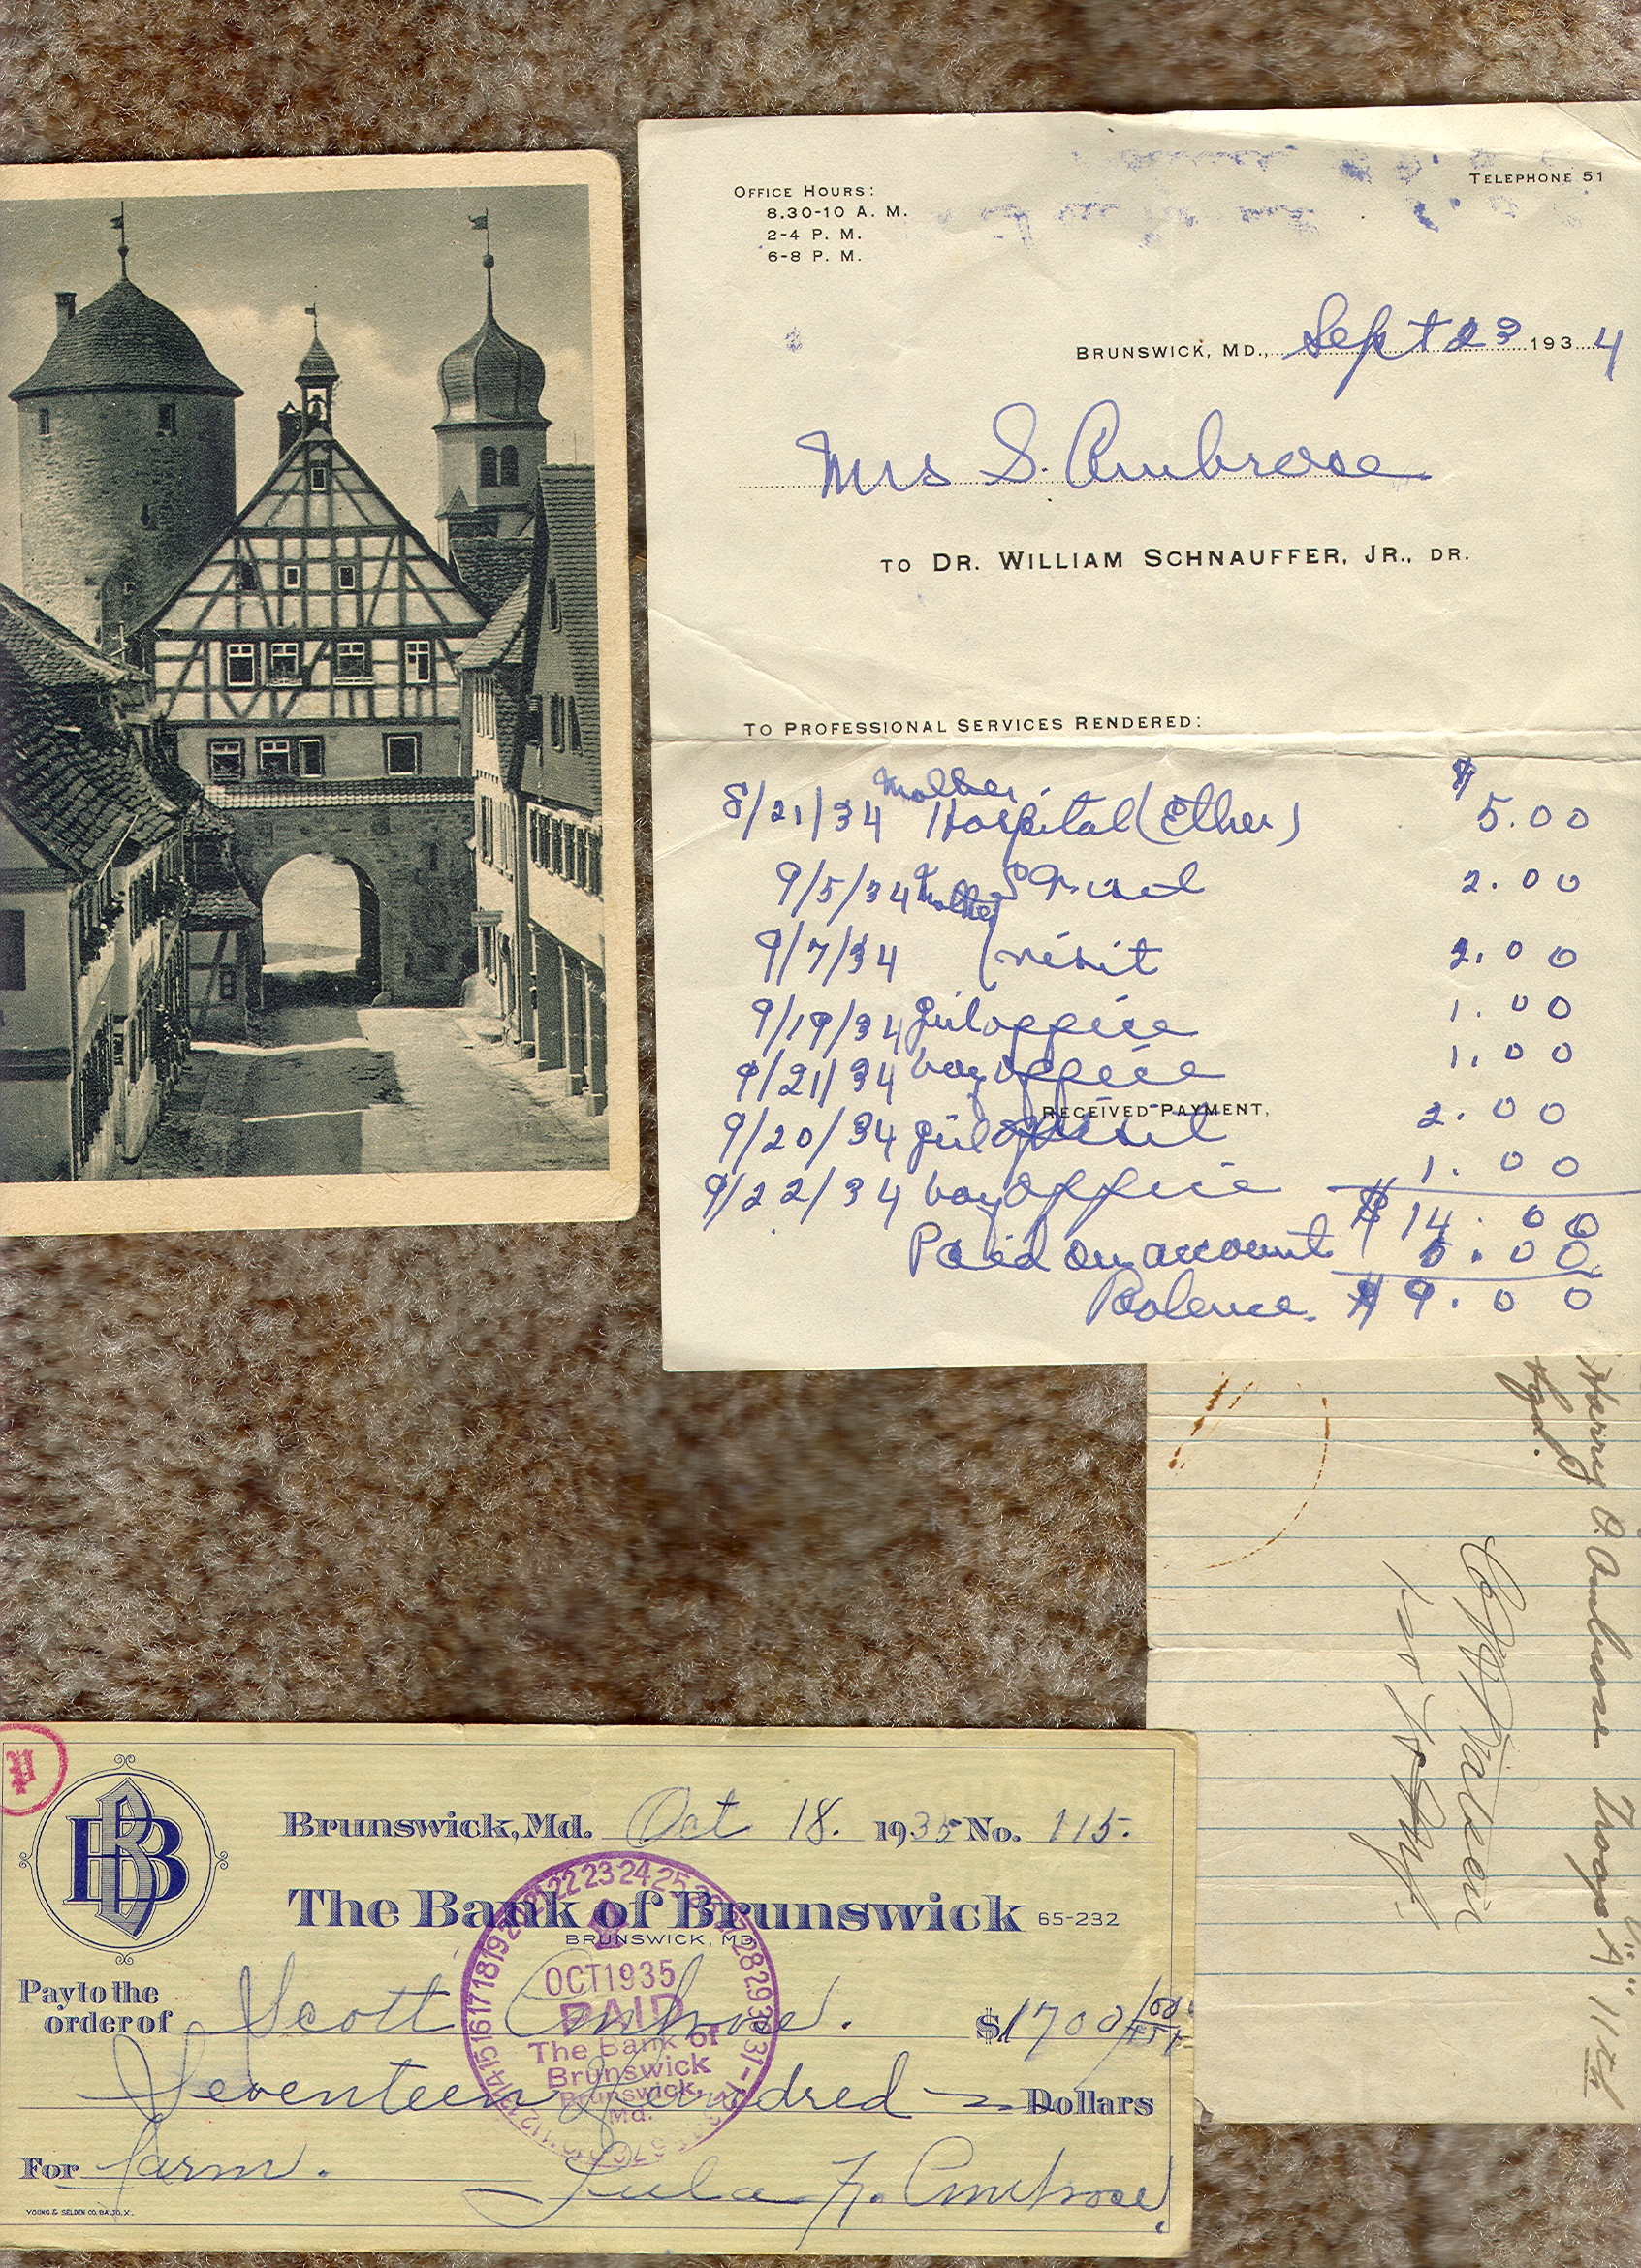 OFFICE HOURS:
8.30-10 A. M.
2-4 P. M.
6-8 P. M.
TELEPHONE 51
BRUNSWICK, MD., Sept 23 1934
Mrs S. Ambrose
TO DR. WILLIAM SCHNAUFFER, JR., DR.
TO PROFESSIONAL SERVICES RENDERED:
Mother $
8/21/34 Hospital (Ether) 5.00
9/5/34 2.00
Mother
9/7/34 visit 2.00
9/19/34 girl office 1.00
9/21/34 boy office 1.00
RECEIVED PAYMENT,
9/20/34 girl visit 2.00
9/22/34 boy office 1.00
$14.00
Paid on account 5.00
Balance $9.00
Harry O. Ambrose Troop "A" 11th
Brunswick, Md. Oct 18. 1935 No. 115.
BB
The Bank of Brunswick 65-232
BRUNSWICK, MD
Pay to the
order of Scott Ambrose. $1700
Seventeen Hundred Dollars
For farm.
Lula F. Ambrose.
YOUNG & SELDEN CO. BALTO.
OCT 1935
PAID
The Bank of
Brunswick
Brunswick,
Md.